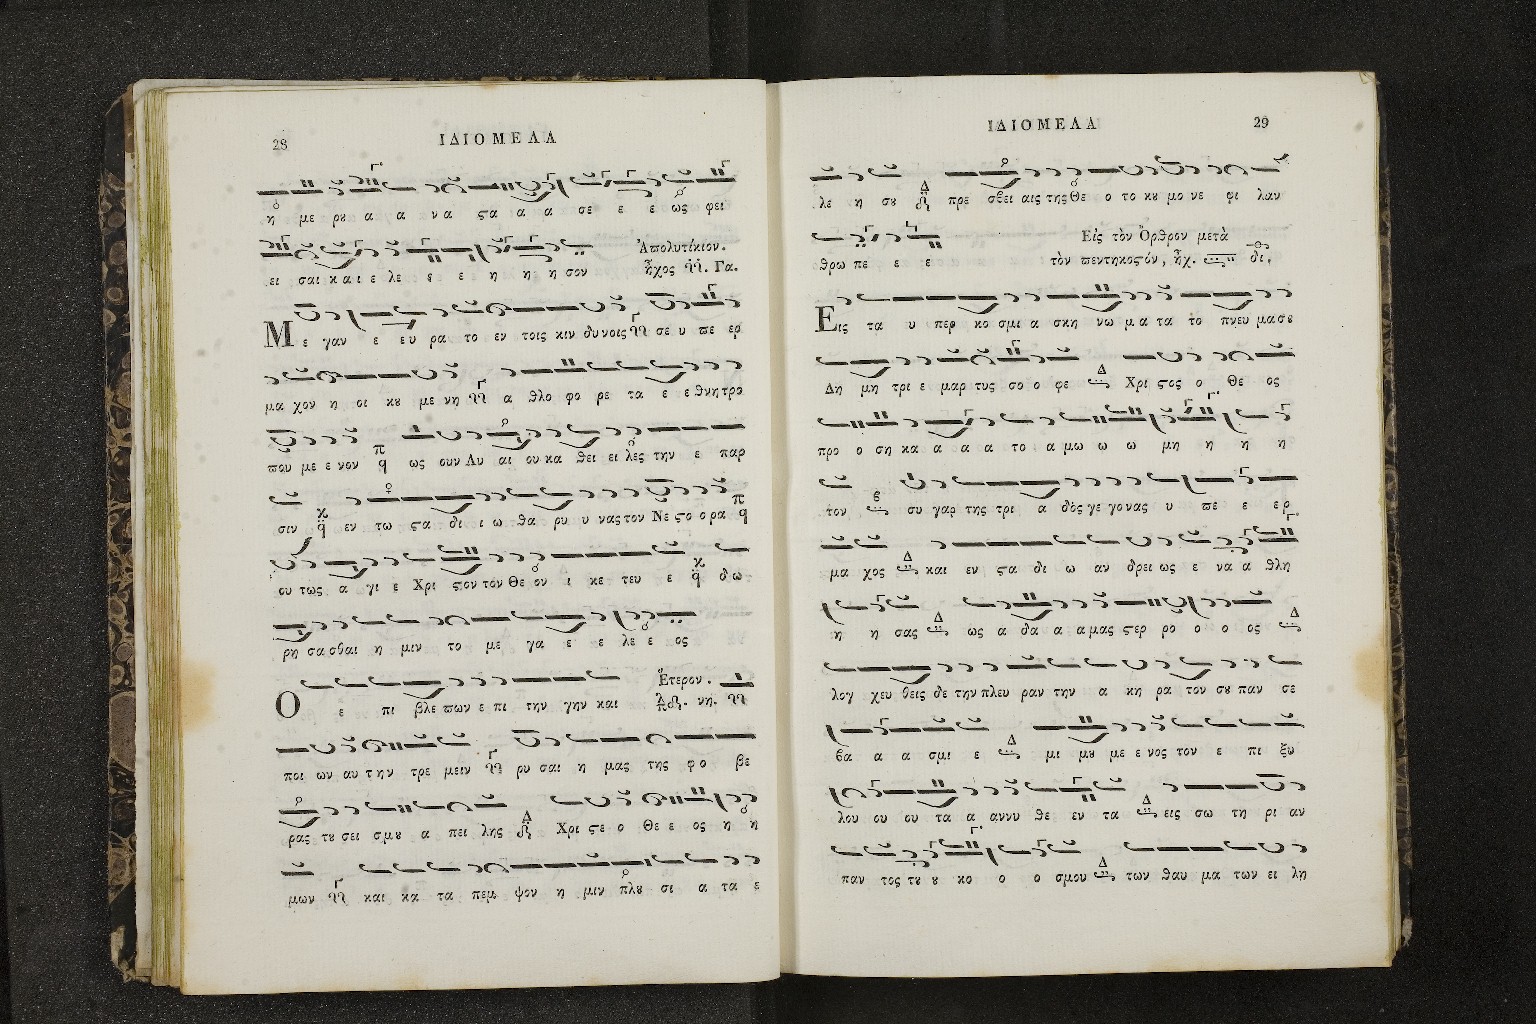 28
ΙΔΙΟΜΕΛΑ
η με ρȣ α α να ϛα α α σε ε ε ως φει
Ἀπολυτίκιον.
ει σαι και ε λε ε ε η η η σον
ἦχος Γα.
Μ ε γαν ε ευ ρα το εν τοις κιν δυνοις σε υ πε ερ
μα χον η οι κȣ με νη α θλο φο ρε τα ε ε θνη τρο
που με ε νον π q ως ουν Λυ αι ου κα θει ει λες την ε παρ
σιν ϗ q εν τω ϛα δι ι ω θα ρυ υ νας τον Νε ϛο ο ρα π q
ου τως α γι ε Χρι ϛον τον Θε ον ι κε τευ ε ϗ q δω
ρη σα σθαι η μιν το με γα ε ε λε ε ος
Ἕτερον.
Ο ε πι βλε πων ε πι την γην και
νη.
ποι ων αυ την τρε μειν ρυ σαι η μας της φο βε
ρας τȣ σει σμȣ α πει λης Δ Χρι ϛε ο Θε ε ος η η
μων και κα τα πεμ ψον η μιν πλȣ σι α τα ε
ΙΔΙΟΜΕΛΑ
29
λε η σȣ Δ πρε σβει αις της Θε ο το κȣ μο νε φι λαν
Εἰς τὸν Ὄρθρον μετὰ
θρω πε ε ε
τὸν πεντηκοϛὸν, ἦχ. δι.
Ε ις τα υ περ κο σμι α σκη νω μα τα το πνευ μα σȣ
Δη μη τρι ε μαρ τυς σο ο φε Δ Χρι ϛος ο Θε ος
προ ο ση κα α α α το α μω ω ω μη η η η
τον συ γαρ της τρι α δὸς γε γο νας υ πε ε ερ
μα χος Δ και εν ϛα δι ω αν δρει ως ε να α θλη
η η σας Δ ως α δα α α μας ϛερ ρο ο ο ος Δ
λογ χευ θεις δε την πλευ ραν την α κη ρα τον σȣ παν σε
βα α α σμι ε Δ μι μȣ με ε νος τον ε πι ξυ
λου ου ου τα α αννυ θε εν τα Δ εις σω τη ρι αν
παν τος τȣ ȣ κο ο ο σμου Δ των θαυ μα των ει λη